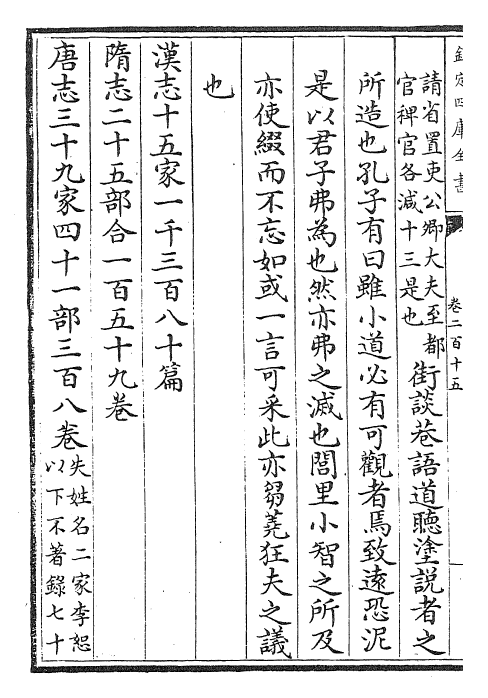 欽定四庫全書
卷二百十五
請省置吏公卿大夫至都
官稗官各減十三是也
街談巷語道聽塗説者之
所造也孔子有曰雖小道必有可觀者焉致遠恐泥
是以君子弗為也然亦弗之滅也閭里小智之所及
亦使綴而不忘如或一言可采此亦芻蕘狂夫之議
也
漢志十五家一千三百八十篇
隋志二十五部合一百五十九卷
唐志三十九家四十一部三百八卷
失姓名二家李恕
以下不著錄七十